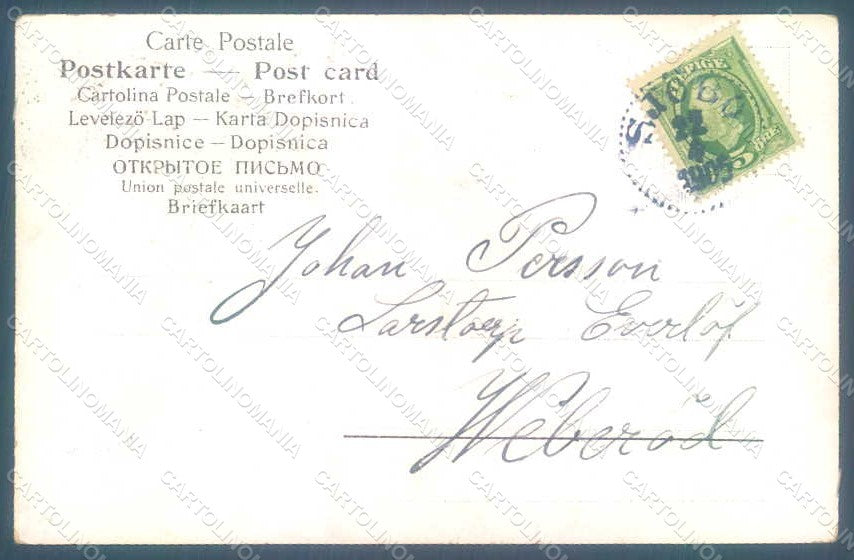 Carte Postale
Postkarte — Post card
Cartolina Postale — Brefkort
Levelező-Lap — Karta Dopisnica
Dopisnice — Dopisnica
ОТКРЫТОЕ ПИСЬМО
Union postale universelle.
Briefkaart
SVERIGE
5 ÖRE
SJÖBO
1905
Johan Persson
Larstorp Everlöf
Weberöd
CARTOLINOMANIA